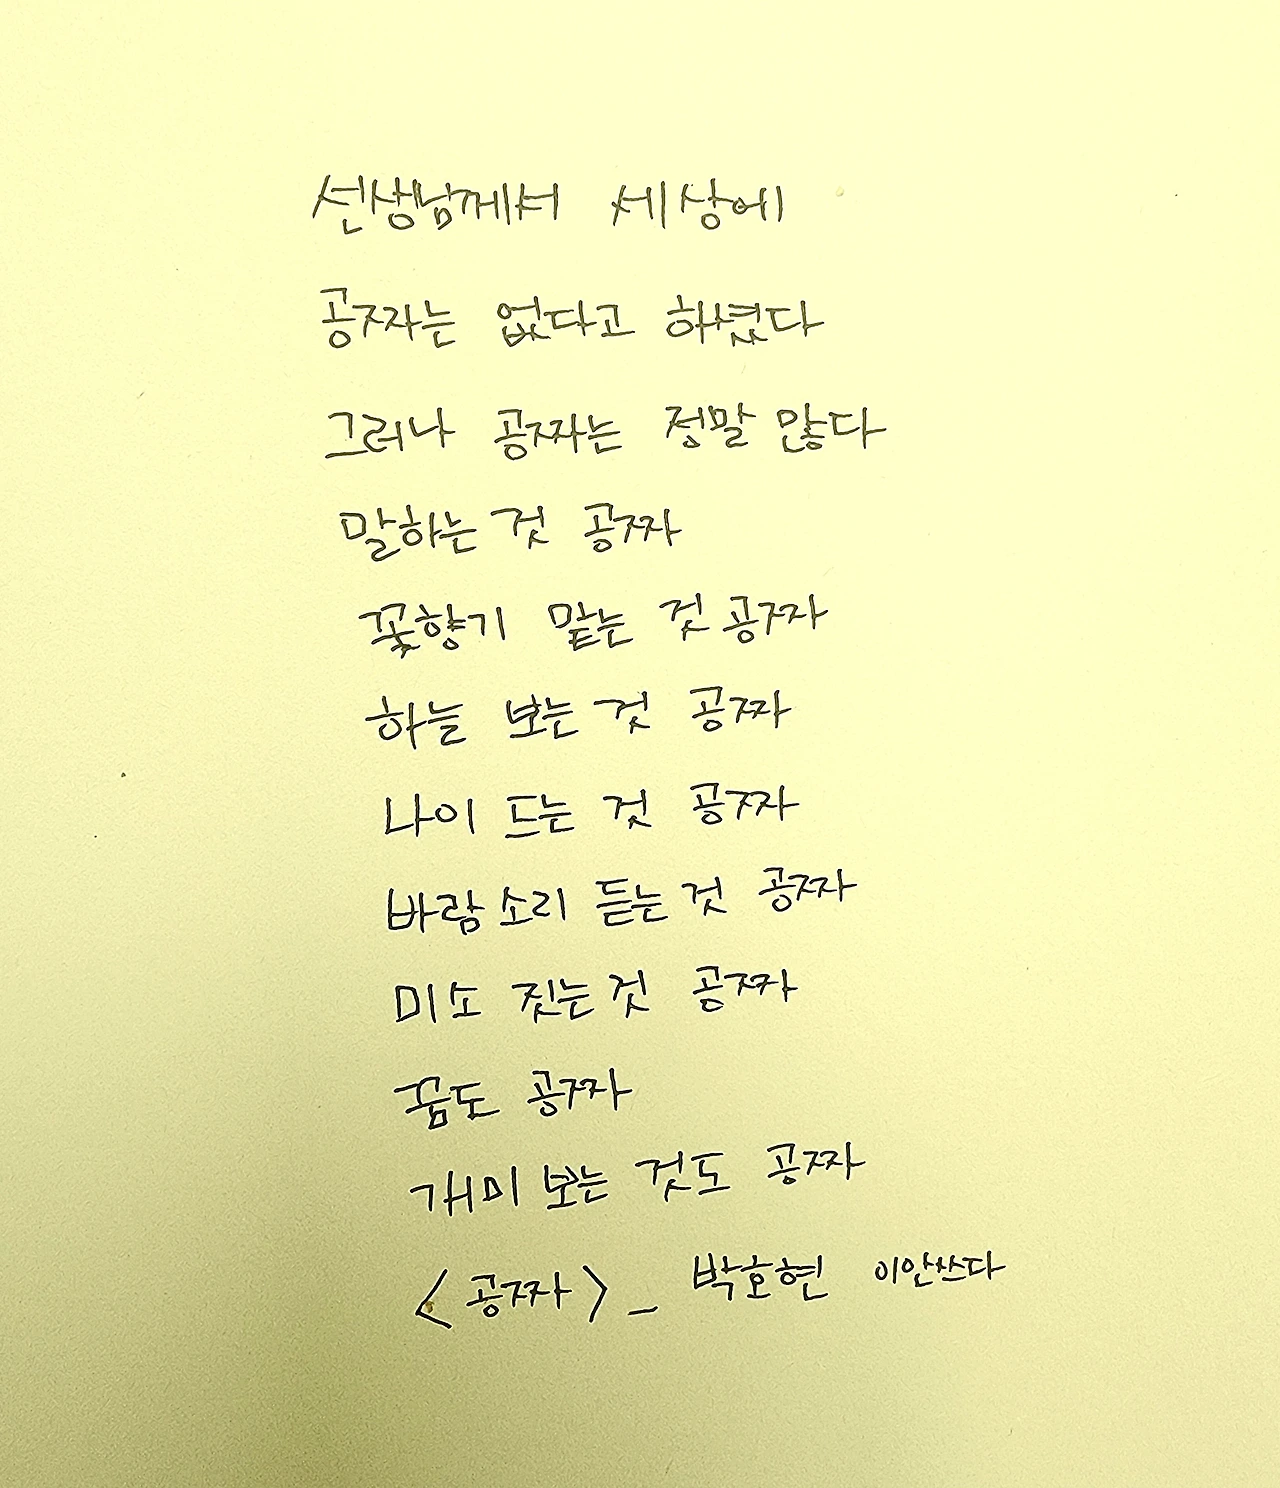 선생님께서 세상에
공짜는 없다고 하셨다
그러나 공짜는 정말 많다
말하는 것 공짜
꽃향기 맡는 것 공짜
하늘 보는 것 공짜
나이 드는 것 공짜
바람소리 듣는 것 공짜
미소 짓는 것 공짜
꿈도 공짜
개미 보는 것도 공짜
<공짜> _ 박호현 이안쓰다